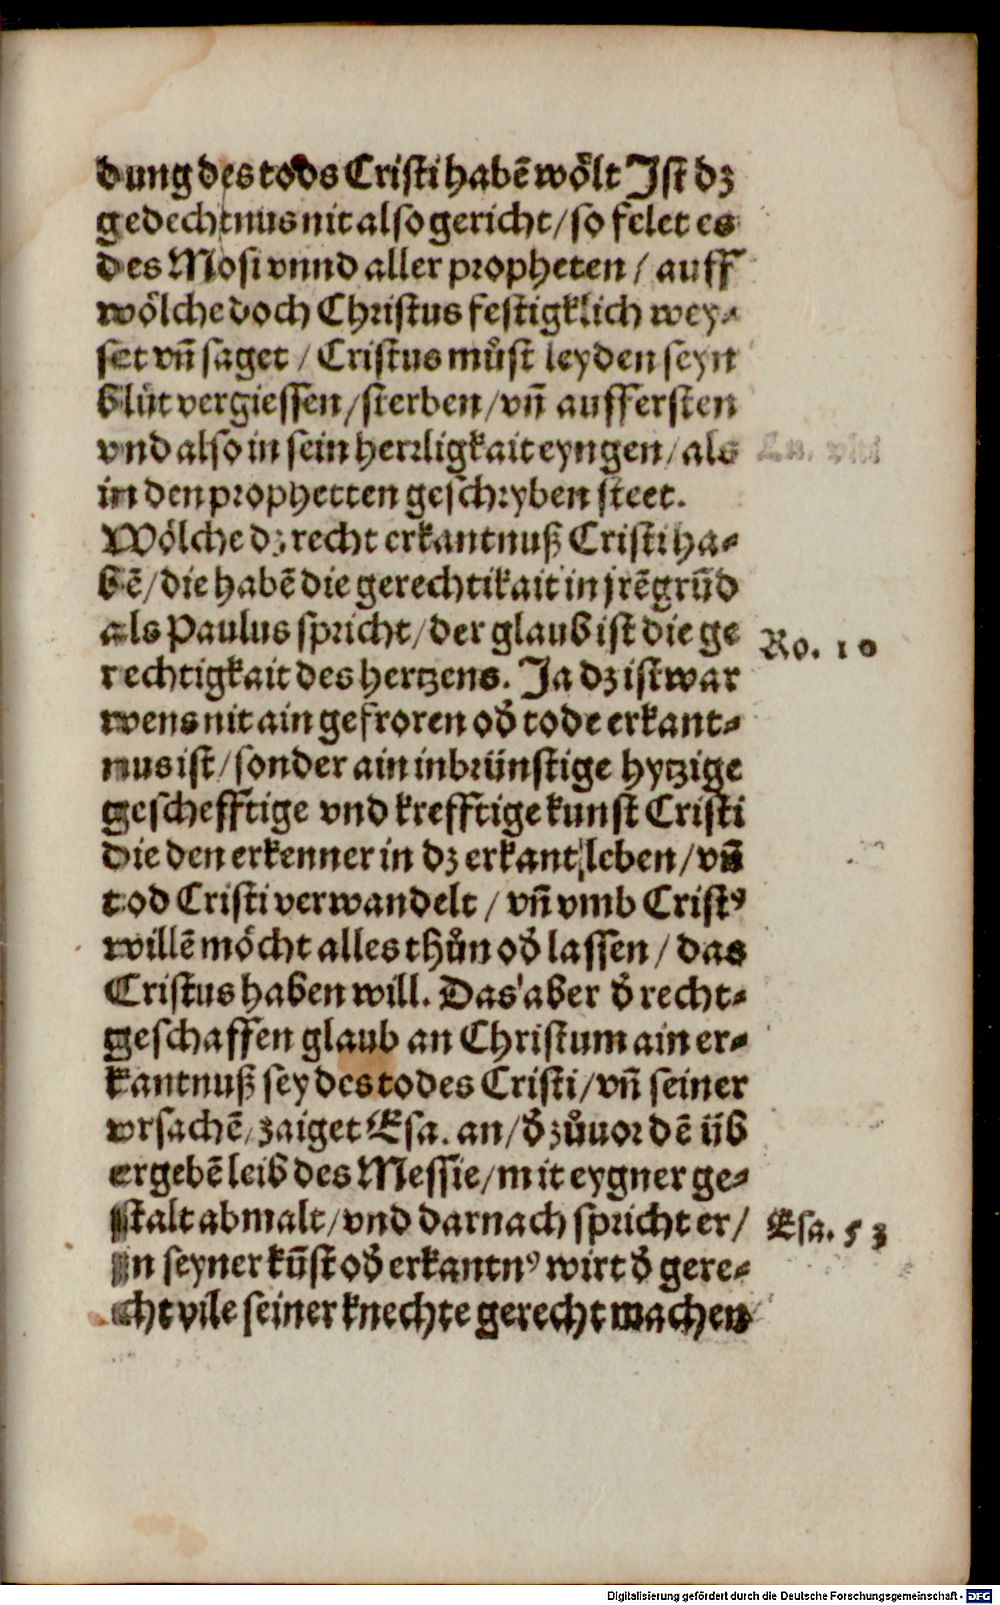 dung des tods Cristi habē wo̊lt Ist dz
gedechtnus nit also gericht / so felet es
des Mosi vnnd aller propheten / auff
wölche doch Christus festigklich wey⸗
set vn̄ saget / Cristus mu̓st leyden seyn
blůt vergiessen / sterben / vn̄ auffersten
vnd also in sein herrligkait eyngen / als
in den prophetten geschryben steet.
Wölche dz recht erkantnuß Cristi ha⸗
bē / die habē die gerechtikait in jrē grūd
als Paulus spricht / der glaub ist die ge
Ro. 10
rechtigkait des hertzens. Ja dz ist war
wens nit ain gefroren od̓ tode erkant⸗
nus ist / sonder ain inbrünstige hytzige
geschefftige vnd krefftige kunst Cristi
die den erkenner in dz erkant leben / vn̄
tod Cristi verwandelt / vn̄ vmb Cristꝰ
willē möcht alles thůn od̓ lassen / das
Cristus haben will. Das aber d̓ recht⸗
geschaffen glaub an Christum ain er⸗
kantnuß sey des todes Cristi / vn̄ seiner
vrsachē / zaiget Esa. an / d̓ zůuor dē üb
ergebē leib des Messie / mit eygner ge⸗
stalt abmalt / vnd darnach spricht er /
Esa. 53
in seyner kūst od̓ erkantnꝰ wirt d̓ gere⸗
cht vile seiner knechte gerecht machen
Digitalisierung gefördert durch die Deutsche Forschungsgemeinschaft - DFG